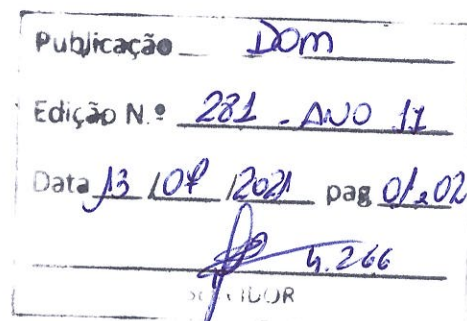 Publicação DOM
Edição N.º 281 - ANO 11
Data 13 / 07 / 2021 pag 01 a 02
4.266
SERVIDOR